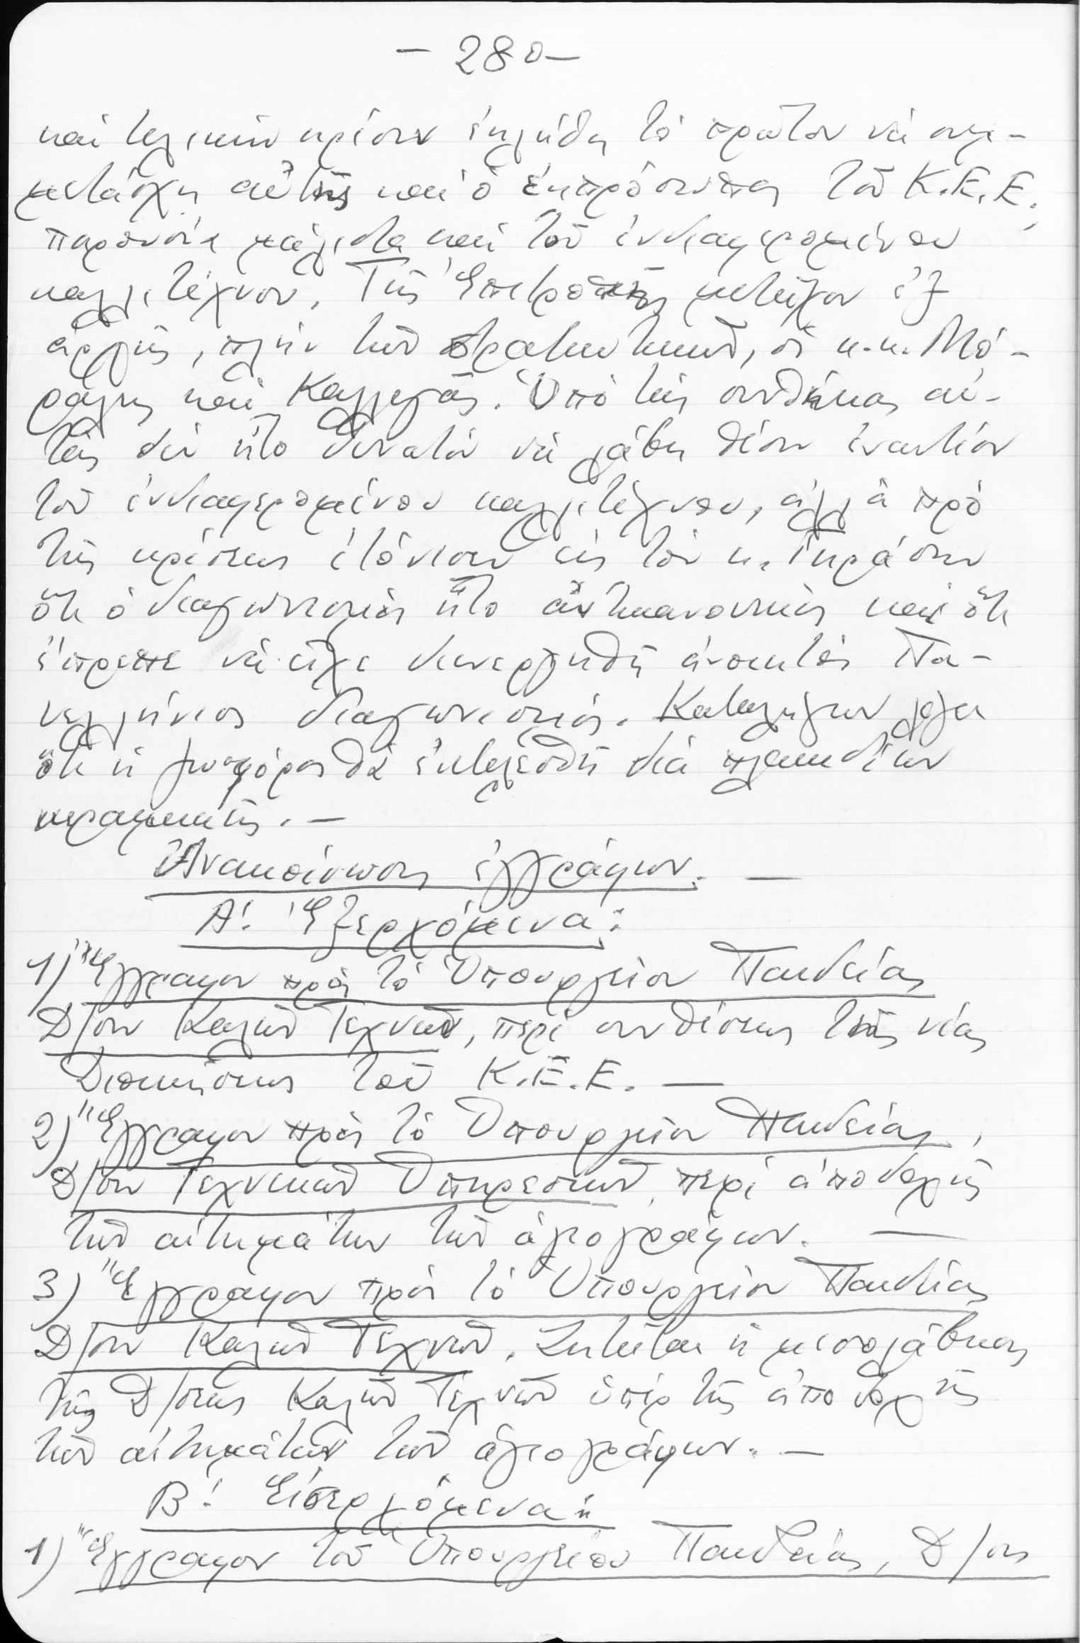 - 280 -
καί τελικήν κρίσιν ἐκλήθη τό πρῶτον νά συμ-
μετάσχῃ αὐτῆς καί ὁ ἐκπρόσωπος τοῦ Κ.Ε.Ε.,
παρουσίᾳ μάλιστα καί τοῦ ἐνδιαφερομένου
καλλιτέχνου. Τῆς Ἐπιτροπῆς μετεῖχον ἐξ
ἀρχῆς, πλήν τῶν στρατιωτικῶν, οἱ κ.κ. Μό-
ραλης καί Καλλιγᾶς. Ὑπό τάς συνθήκας αὐ-
τάς δέν ἦτο δυνατόν νά λάβῃ θέσιν ἐναντίον
τοῦ ἐνδιαφερομένου καλλιτέχνου, ἀλλά πρό
τῆς κρίσεως ἐτόνισεν εἰς τόν κ.
ὅτι ὁ διαγωνισμός ἦτο ἀντικανονικός καί ὅτι
ἔπρεπε νά εἶχε διενεργηθῆ ἀνοικτός Πα-
νελλήνιος διαγωνισμός. Καταλήγων λέγει
ὅτι ἡ ζωφόρος θά ἐκτελεσθῆ διά πλακιδίων
κεραμικῆς. -
Ἀνακοίνωσις ἐγγράφων. -
Α! Ἐξερχόμενα:
1) Ἔγγραφον πρός τό Ὑπουργεῖον Παιδείας
Δ/σιν Καλῶν Τεχνῶν, περί συνθέσεως τῆς νέας
Διοικήσεως τοῦ Κ.Ε.Ε. -
2) Ἔγγραφον πρός τό Ὑπουργεῖον Παιδείας,
Δ/σιν Τεχνικῶν Ὑπηρεσιῶν, περί ἀποδοχῆς
τῶν αἰτημάτων τῶν ἁγιογράφων. -
3) Ἔγγραφον πρός τό Ὑπουργεῖον Παιδείας
Δ/σιν Καλῶν Τεχνῶν. Ζητεῖται ἡ μεσολάβησις
τῆς Δ/σεως Καλῶν Τεχνῶν ὑπέρ τῆς ἀποδοχῆς
τῶν αἰτημάτων τῶν ἁγιογράφων. -
Β! Εἰσερχόμενα:
1) Ἔγγραφον τοῦ Ὑπουργείου Παιδείας, Δ/σις